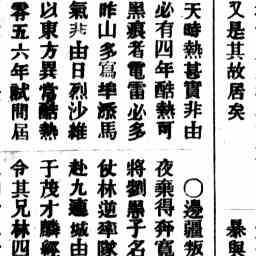 又是其故居矣
天時熱甚實非由
必有四年酷熱可
黑痕者電雷必多
昨山多寫添馬
氣非由日烈沙維
以東方異常酷熱
零五六年試間屆
暴與
○邊疆叛
夜棄得奔寬
將劉子名
仗林逆率隊
赴九連城由
于茂才麟經
令其兄林四